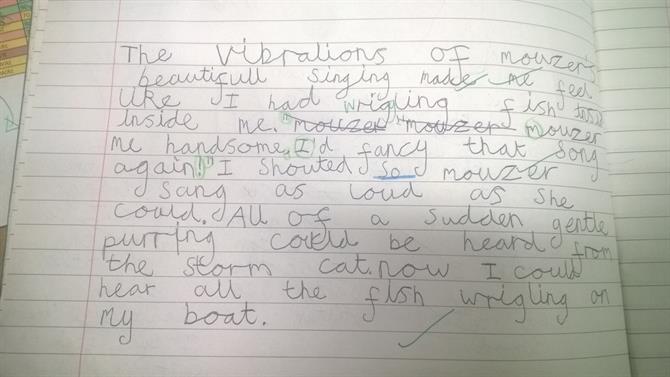 The vibrations of mouzer's
beautifull singing made me feel
like I had wrigling fish
inside me. "mouzer "mouzer mouzer
me handsome, I'd fancy that song
again!" I shouted so mouzer
sang as loud as she
could. All of a sudden gentle
purring could be heard from
the storm cat. now I could
hear all the fish wrigling on
my boat.